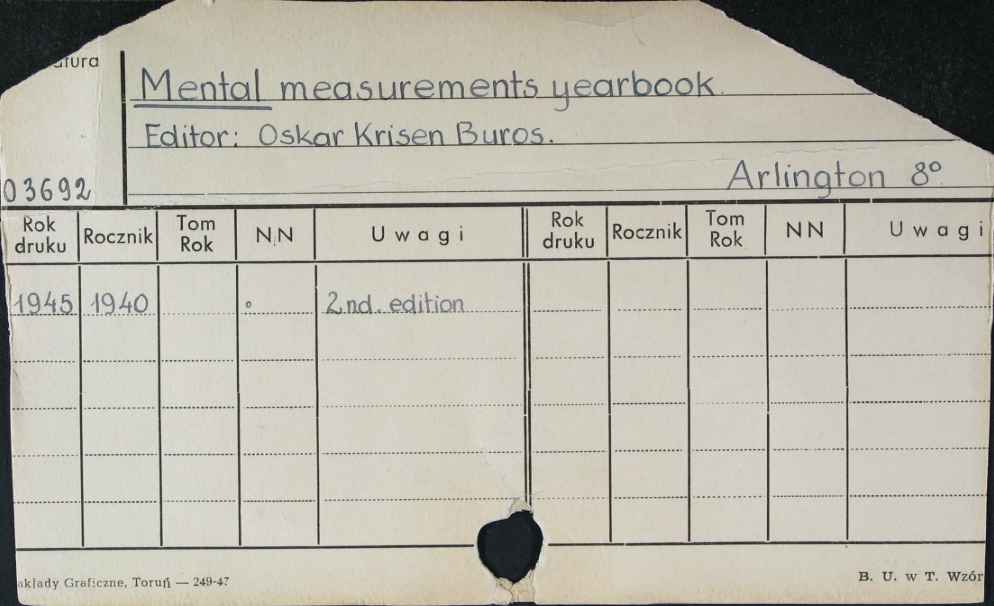 Mental measurements yearbook
Editor: Oskar Krisen Buros.
03692
Arlington 8°
Rok druku Rocznik Tom Rok N.N Uwagi Rok druku Rocznik Tom Rok NN Uwagi
1945 1940 ° 2.nd. edition
akłady Graficzne, Toruń — 249-47
B. U. w T. Wzór